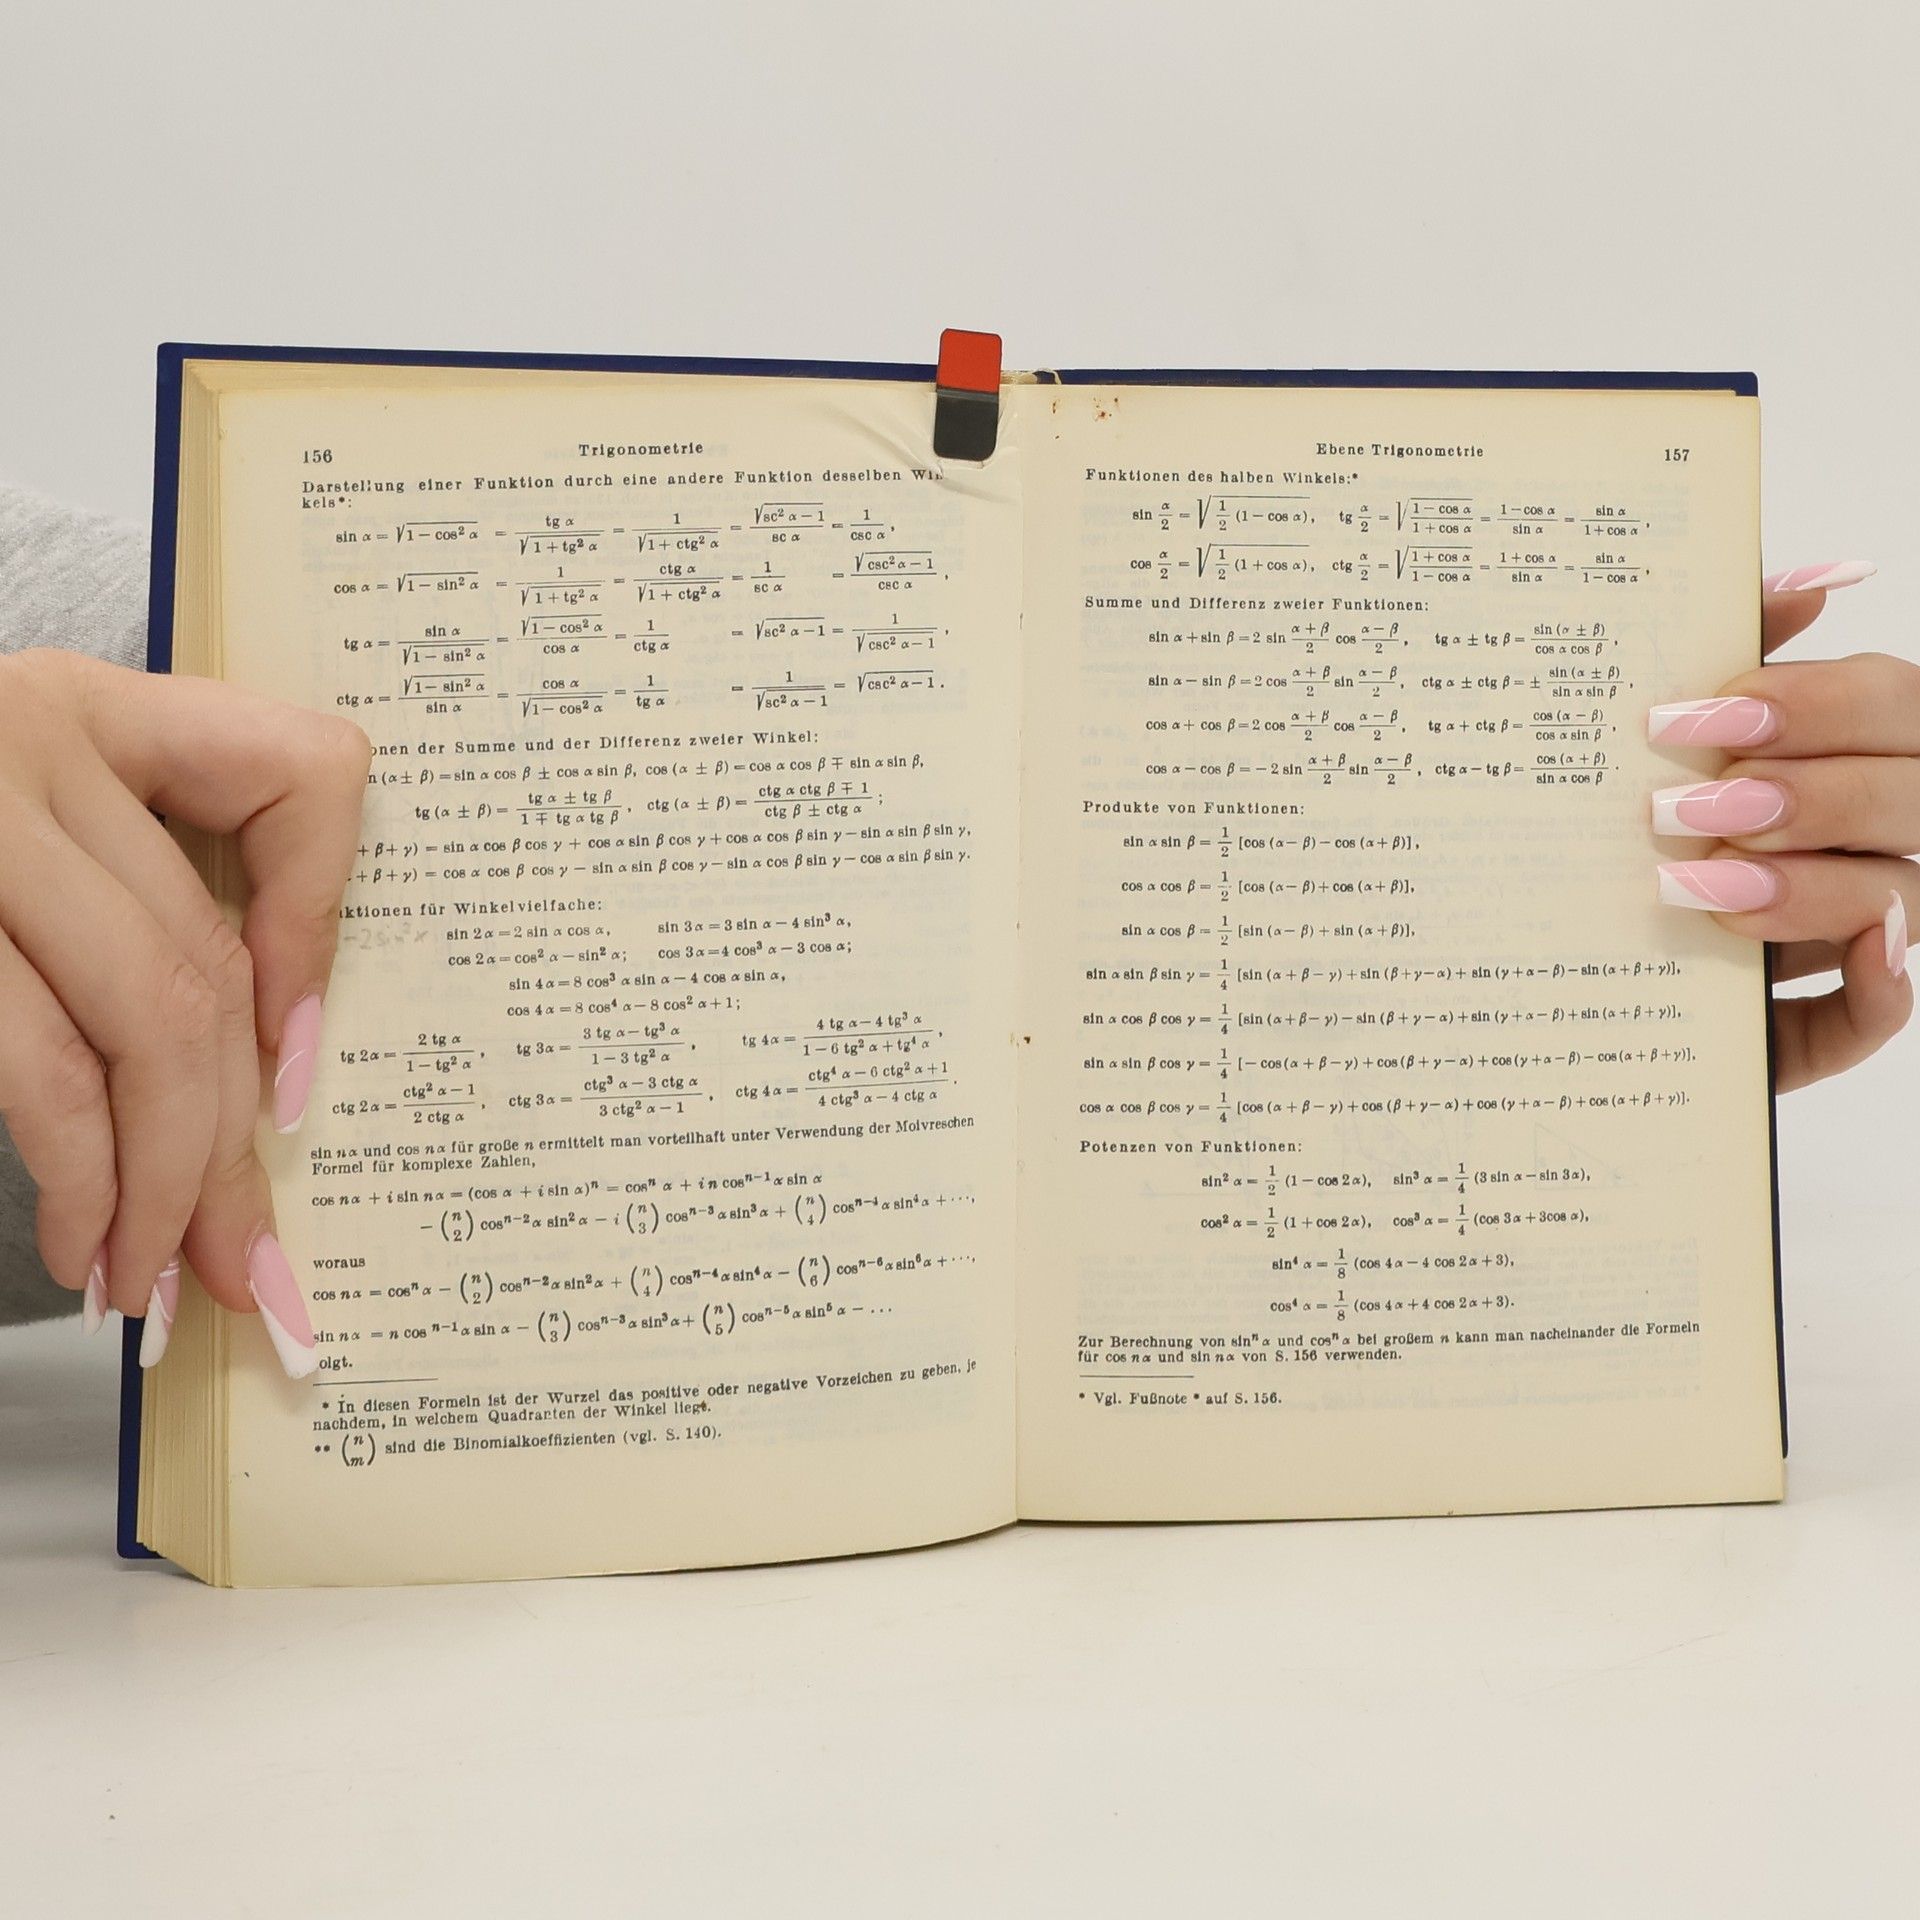 156
Trigonometrie
Darstellung einer Funktion durch eine andere Funktion desselben
kels*:
sin α = √(1 − cos² α) = tg α / √(1 + tg² α) = 1 / √(1 + ctg² α) = √(sc² α − 1) / sc α = 1 / csc α,
cos α = √(1 − sin² α) = 1 / √(1 + tg² α) = ctg α / √(1 + ctg² α) = 1 / sc α = √(csc² α − 1) / csc α,
tg α = sin α / √(1 − sin² α) = √(1 − cos² α) / cos α = 1 / ctg α = √(sc² α − 1) = 1 / √(csc² α − 1),
ctg α = √(1 − sin² α) / sin α = cos α / √(1 − cos² α) = 1 / tg α = 1 / √(sc² α − 1) = √(csc² α − 1).
onen der Summe und der Differenz zweier Winkel:
n (α ± β) = sin α cos β ± cos α sin β, cos (α ± β) = cos α cos β ∓ sin α sin β,
tg (α ± β) = (tg α ± tg β) / (1 ∓ tg α tg β), ctg (α ± β) = (ctg α ctg β ∓ 1) / (ctg β ± ctg α);
+ β + γ) = sin α cos β cos γ + cos α sin β cos γ + cos α cos β sin γ − sin α sin β sin γ,
+ β + γ) = cos α cos β cos γ − sin α sin β cos γ − sin α cos β sin γ − cos α sin β sin γ.
ktionen für Winkelvielfache:
−2 sin² x
sin 2α = 2 sin α cos α, sin 3α = 3 sin α − 4 sin³ α,
cos 2α = cos² α − sin² α; cos 3α = 4 cos³ α − 3 cos α;
sin 4α = 8 cos³ α sin α − 4 cos α sin α,
cos 4α = 8 cos⁴ α − 8 cos² α + 1;
tg 2α = 2 tg α / (1 − tg² α), tg 3α = (3 tg α − tg³ α) / (1 − 3 tg² α), tg 4α = (4 tg α − 4 tg³ α) / (1 − 6 tg² α + tg⁴ α),
ctg 2α = (ctg² α − 1) / (2 ctg α), ctg 3α = (ctg³ α − 3 ctg α) / (3 ctg² α − 1), ctg 4α = (ctg⁴ α − 6 ctg² α + 1) / (4 ctg³ α − 4 ctg α).
sin nα und cos nα für große n ermittelt man vorteilhaft unter Verwendung der Moivreschen
Formel für komplexe Zahlen,
cos nα + i sin nα = (cos α + i sin α)ⁿ = cosⁿ α + i n cosⁿ⁻¹ α sin α
− (n 2) cosⁿ⁻² α sin² α − i (n 3) cosⁿ⁻³ α sin³ α + (n 4) cosⁿ⁻⁴ α sin⁴ α + ···,
woraus
cos nα = cosⁿ α − (n 2) cosⁿ⁻² α sin² α + (n 4) cosⁿ⁻⁴ α sin⁴ α − (n 6) cosⁿ⁻⁶ α sin⁶ α + ···,
sin nα = n cosⁿ⁻¹ α sin α − (n 3) cosⁿ⁻³ α sin³ α + (n 5) cosⁿ⁻⁵ α sin⁵ α − ···
olgt.
* In diesen Formeln ist der Wurzel das positive oder negative Vorzeichen zu geben, je
nachdem, in welchem Quadranten der Winkel liegt.
** (n m) sind die Binomialkoeffizienten (vgl. S. 140).
Ebene Trigonometrie
157
Funktionen des halben Winkels:*
sin α/2 = √(1/2 (1 − cos α)), tg α/2 = √((1 − cos α) / (1 + cos α)) = (1 − cos α) / sin α = sin α / (1 + cos α),
cos α/2 = √(1/2 (1 + cos α)), ctg α/2 = √((1 + cos α) / (1 − cos α)) = (1 + cos α) / sin α = sin α / (1 − cos α),
Summe und Differenz zweier Funktionen:
sin α + sin β = 2 sin (α + β)/2 cos (α − β)/2, tg α ± tg β = sin (α ± β) / (cos α cos β),
sin α − sin β = 2 cos (α + β)/2 sin (α − β)/2, ctg α ± ctg β = ± sin (α ± β) / (sin α sin β),
cos α + cos β = 2 cos (α + β)/2 cos (α − β)/2, tg α + ctg β = cos (α − β) / (cos α sin β),
cos α − cos β = − 2 sin (α + β)/2 sin (α − β)/2, ctg α − tg β = cos (α + β) / (sin α cos β).
Produkte von Funktionen:
sin α sin β = 1/2 [cos (α − β) − cos (α + β)],
cos α cos β = 1/2 [cos (α − β) + cos (α + β)],
sin α cos β = 1/2 [sin (α − β) + sin (α + β)],
sin α sin β sin γ = 1/4 [sin (α + β − γ) + sin (β + γ − α) + sin (γ + α − β) − sin (α + β + γ)],
sin α cos β cos γ = 1/4 [sin (α + β − γ) − sin (β + γ − α) + sin (γ + α − β) + sin (α + β + γ)],
sin α sin β cos γ = 1/4 [− cos (α + β − γ) + cos (β + γ − α) + cos (γ + α − β) − cos (α + β + γ)],
cos α cos β cos γ = 1/4 [cos (α + β − γ) + cos (β + γ − α) + cos (γ + α − β) + cos (α + β + γ)].
Potenzen von Funktionen:
sin² α = 1/2 (1 − cos 2α), sin³ α = 1/4 (3 sin α − sin 3α),
cos² α = 1/2 (1 + cos 2α), cos³ α = 1/4 (cos 3α + 3 cos α),
sin⁴ α = 1/8 (cos 4α − 4 cos 2α + 3),
cos⁴ α = 1/8 (cos 4α + 4 cos 2α + 3).
Zur Berechnung von sinⁿ α und cosⁿ α bei großem n kann man nacheinander die Formeln
für cos nα und sin nα von S. 156 verwenden.
* Vgl. Fußnote * auf S. 156.